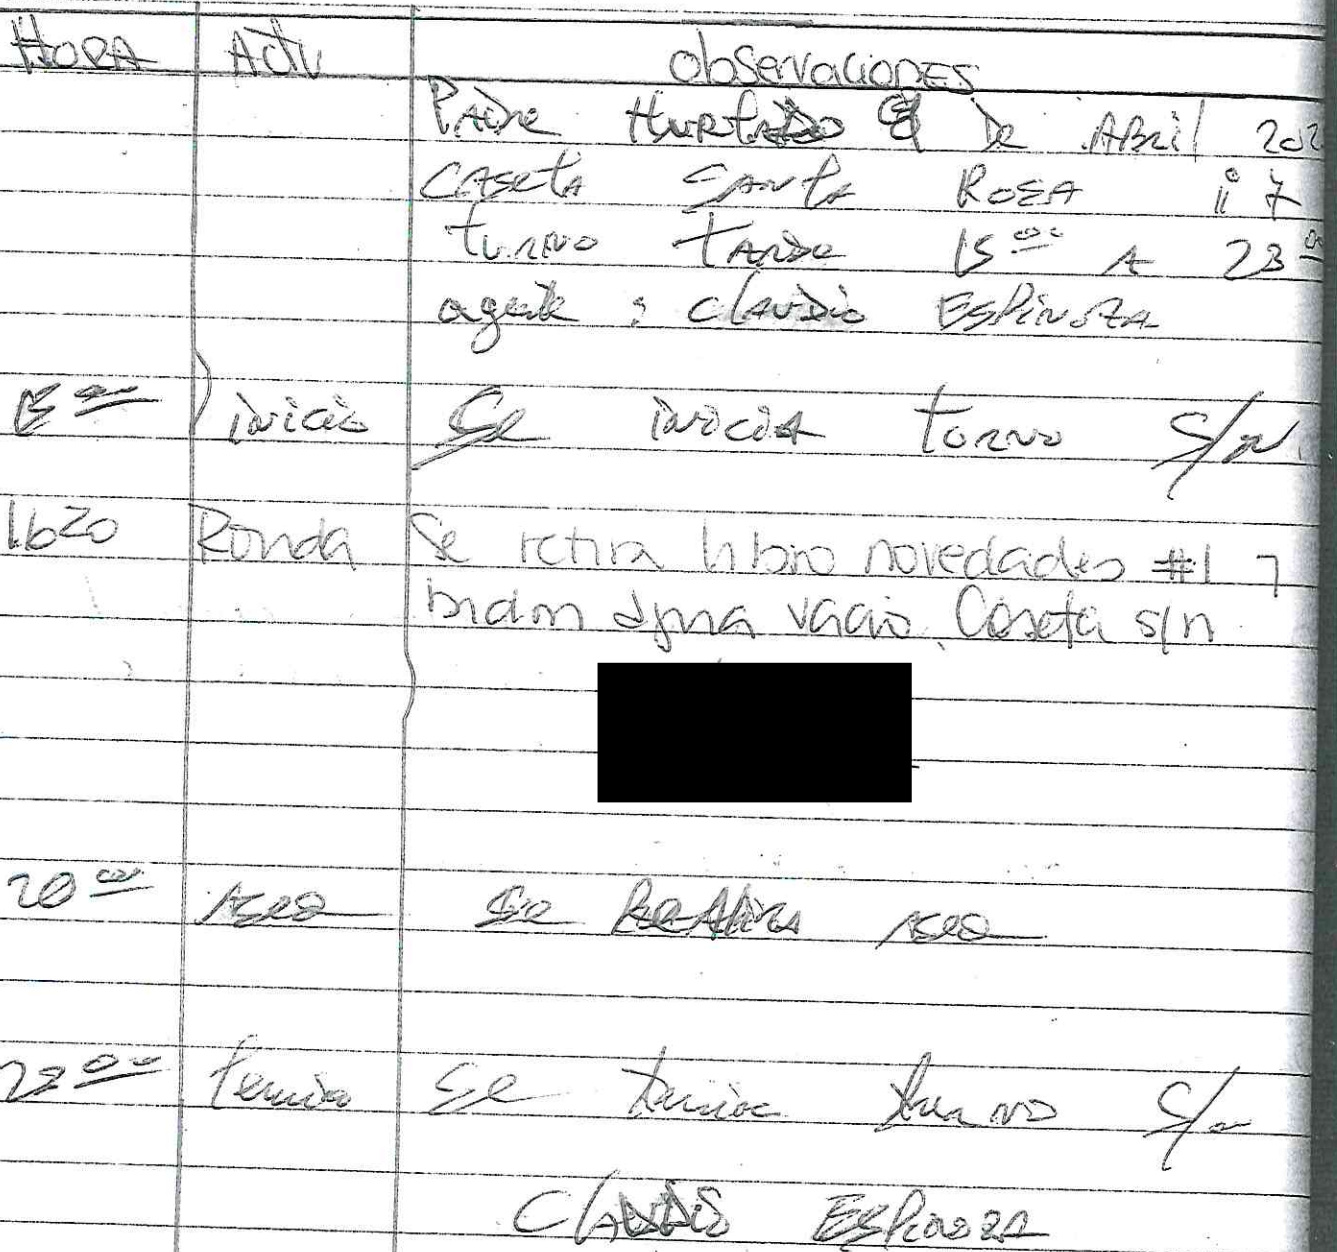 HORA Activ observaciones
Padre Hurtado de Abril 202
Caseta Santa Rosa i 7
turno tarde 15 00 A 23 00
agente : Claudio Espinoza
15 00 inicio Se inicia turno S/N.
1620 Ronda Se retira libro novedades #1 7
bidon agua vacio. Caseta s/n
20 00 Aseo Se Realiza Aseo
Se termina turno S/n
Claudio Espinoza